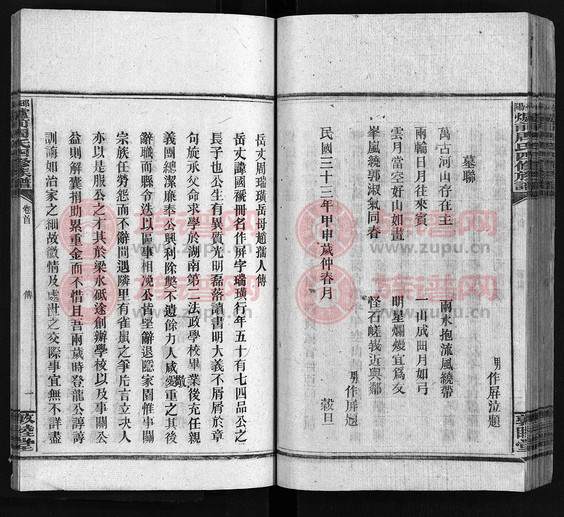 墓聯
萬古河山存在主　雨水抱流風繞帶
男作屏泣題
兩輪日月往來賓　一山成曲月如弓
雲月當空好山如畫　明星爛熳宜為友
男作屏題
峯嵐繞郭淑氣同春　怪石嵯峩近與鄰
民國三十三年甲申歲仲春月　穀旦
岳丈周瑞璜岳母趙孺人傳
岳丈諱國禠冊名作屏字瑞璜行年五十有七四品公之
長子也公生有異質光明磊落讀書明大義不屑屑於章
句旋承父命求學於湖南第二法政學校畢業後充任親
義團總潔廉奉公興利除獘不遺餘力人咸愛重之其後
敵
辭職而縣令迭以區事相浼公皆堅辭退隱家園惟事關
宗族任勞怨而不辭間遇隣里有雀鼠之爭片言立决人
亦以是服公之才其於梁水砥途創辦學校以及事關公
益則解囊捐助累重金而不惜且吾兩歲時登龍公諄諄
訓誨如治家之細故徵情及處世之交際事宜無不詳盡
卷首
傳
一
敦睦堂
族谱网
www.zupu.cn